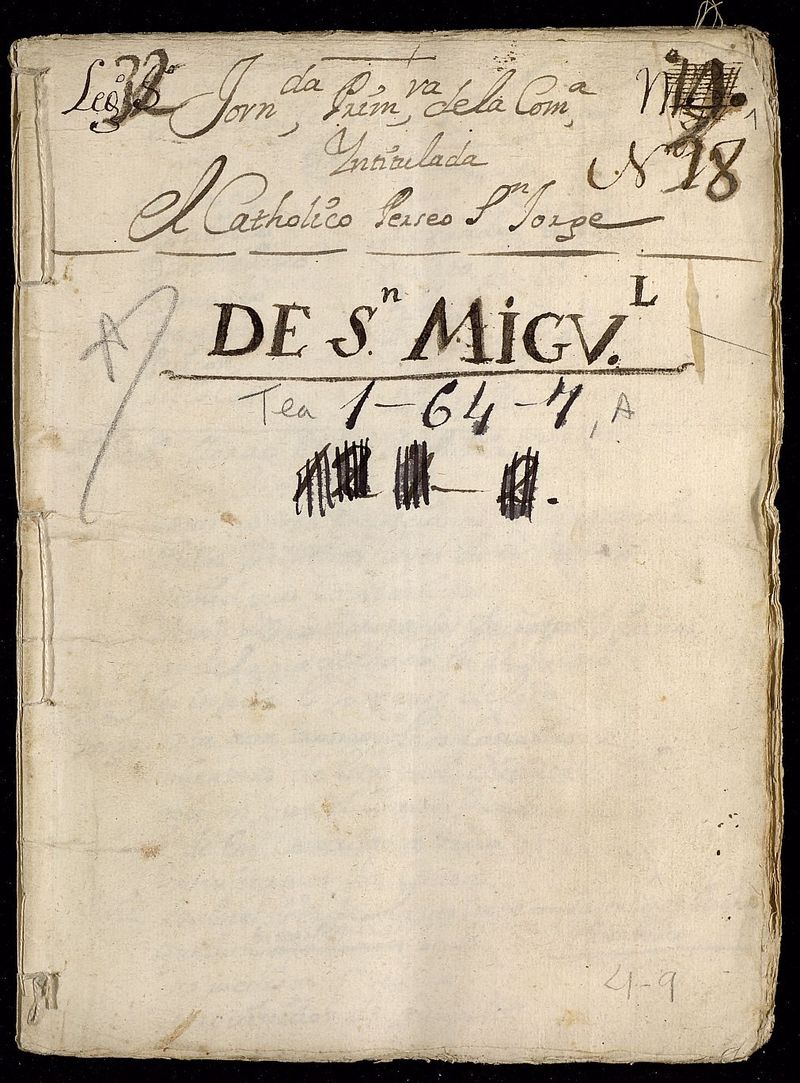 Leg.º 32 Jorn.da Prim.ra de la Com.a N.º
Yntitulada N.º 18
el Catholico Perseo S.n Jorge
DE S.n MIGV.L
A
Tea 1-64-7, A
4-9